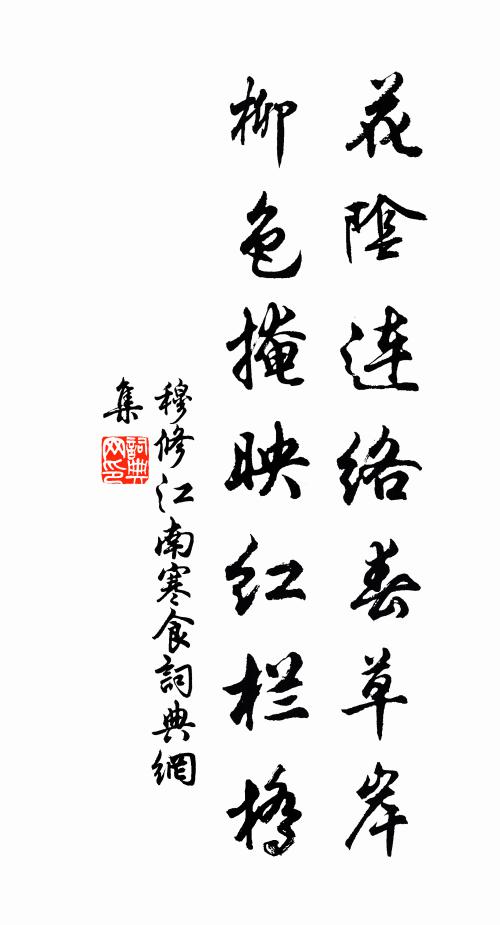 花陰連络春草岸
柳色掩映红栏橋
穆修江南寒食詞典網
集
詞典
网印